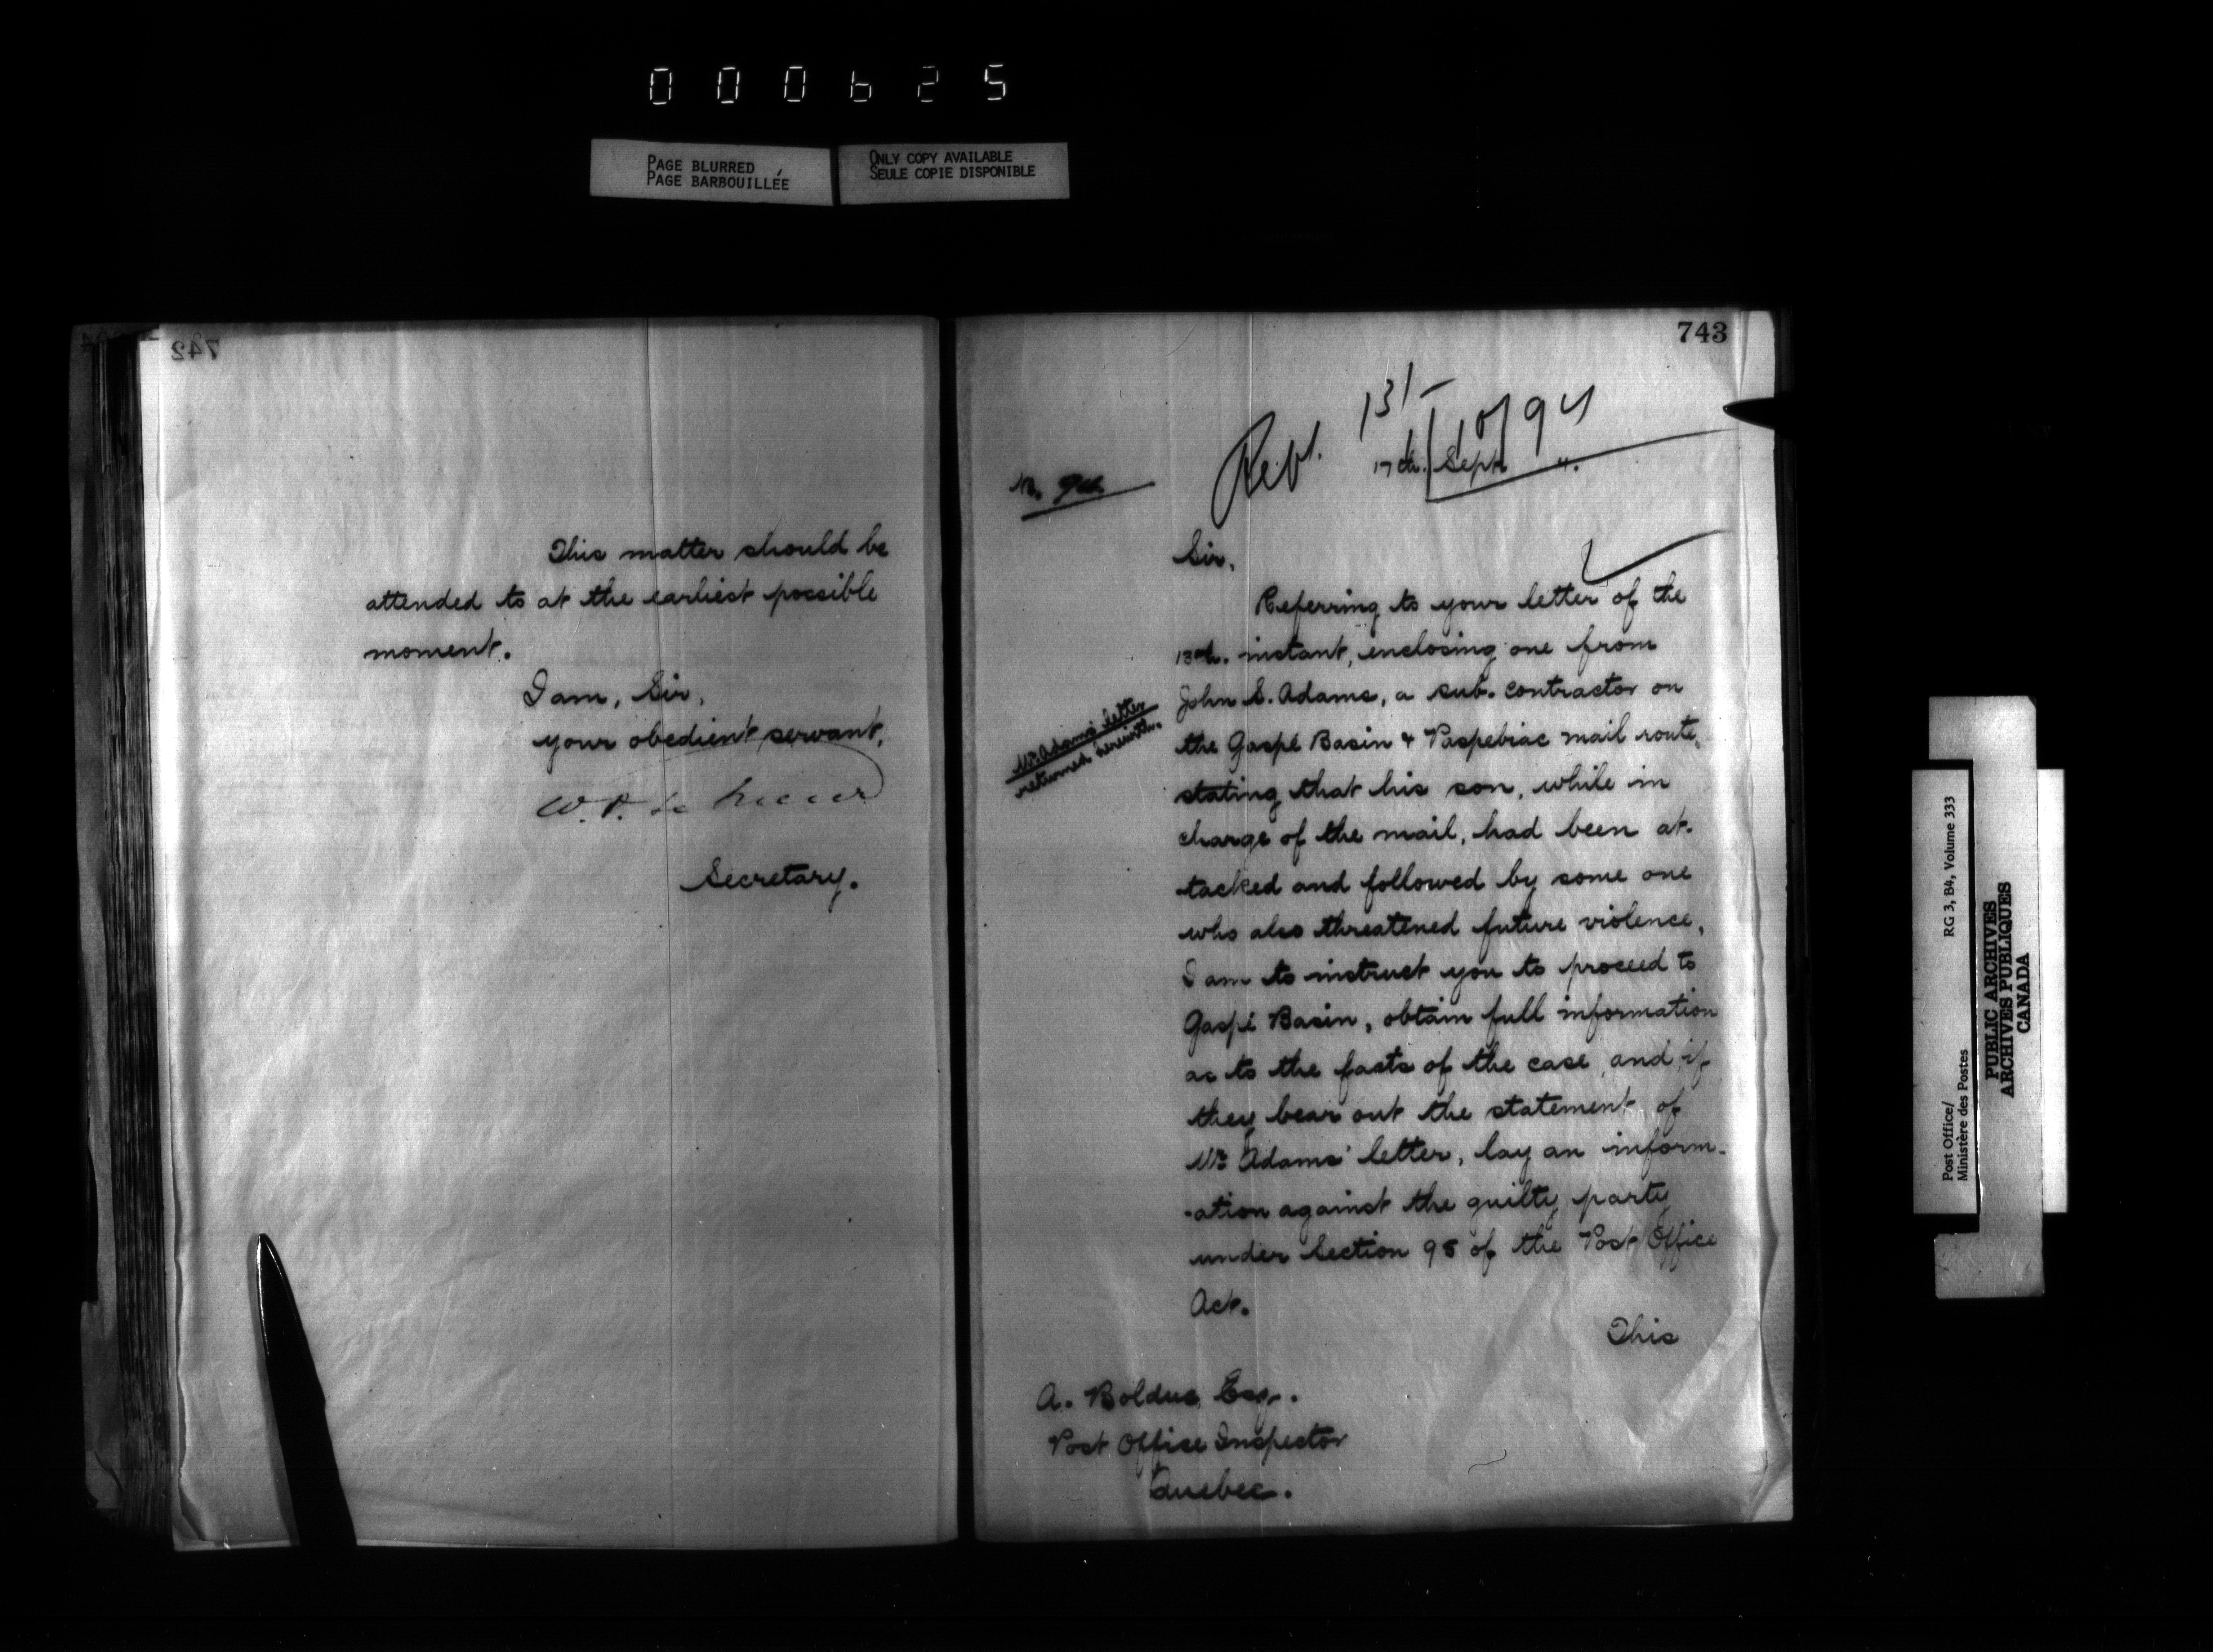 000625
PAGE BLURRED
PAGE BARBOUILLÉE
ONLY COPY AVAILABLE
SEULE COPIE DISPONIBLE
742
This matter should be
attended to at the earliest possible
moment.
I am, Sir,
your obedient servant,
Secretary.
743
13/-
10/94
17th. Sept. ".
Sir,
Referring to your letter of the
13th. instant, enclosing one from
John S. Adams, a sub. contractor on
the Gaspé Basin & Paspebiac mail route,
stating that his son, while in
charge of the mail, had been at-
tacked and followed by some one
who also threatened future violence,
I am to instruct you to proceed to
Gaspé Basin, obtain full information
as to the facts of the case, and if
they bear out the statement of
Mr. Adams' letter, lay an inform-
-ation against the guilty party
under Section 95 of the Post Office
Act.
This
Mr. Adams' letter
returned herewith.
A. Bolduc, Esq.
Post Office Inspector
Quebec.
Post Office/ RG 3, B4, Volume 333
Ministère des Postes
PUBLIC ARCHIVES
ARCHIVES PUBLIQUES
CANADA